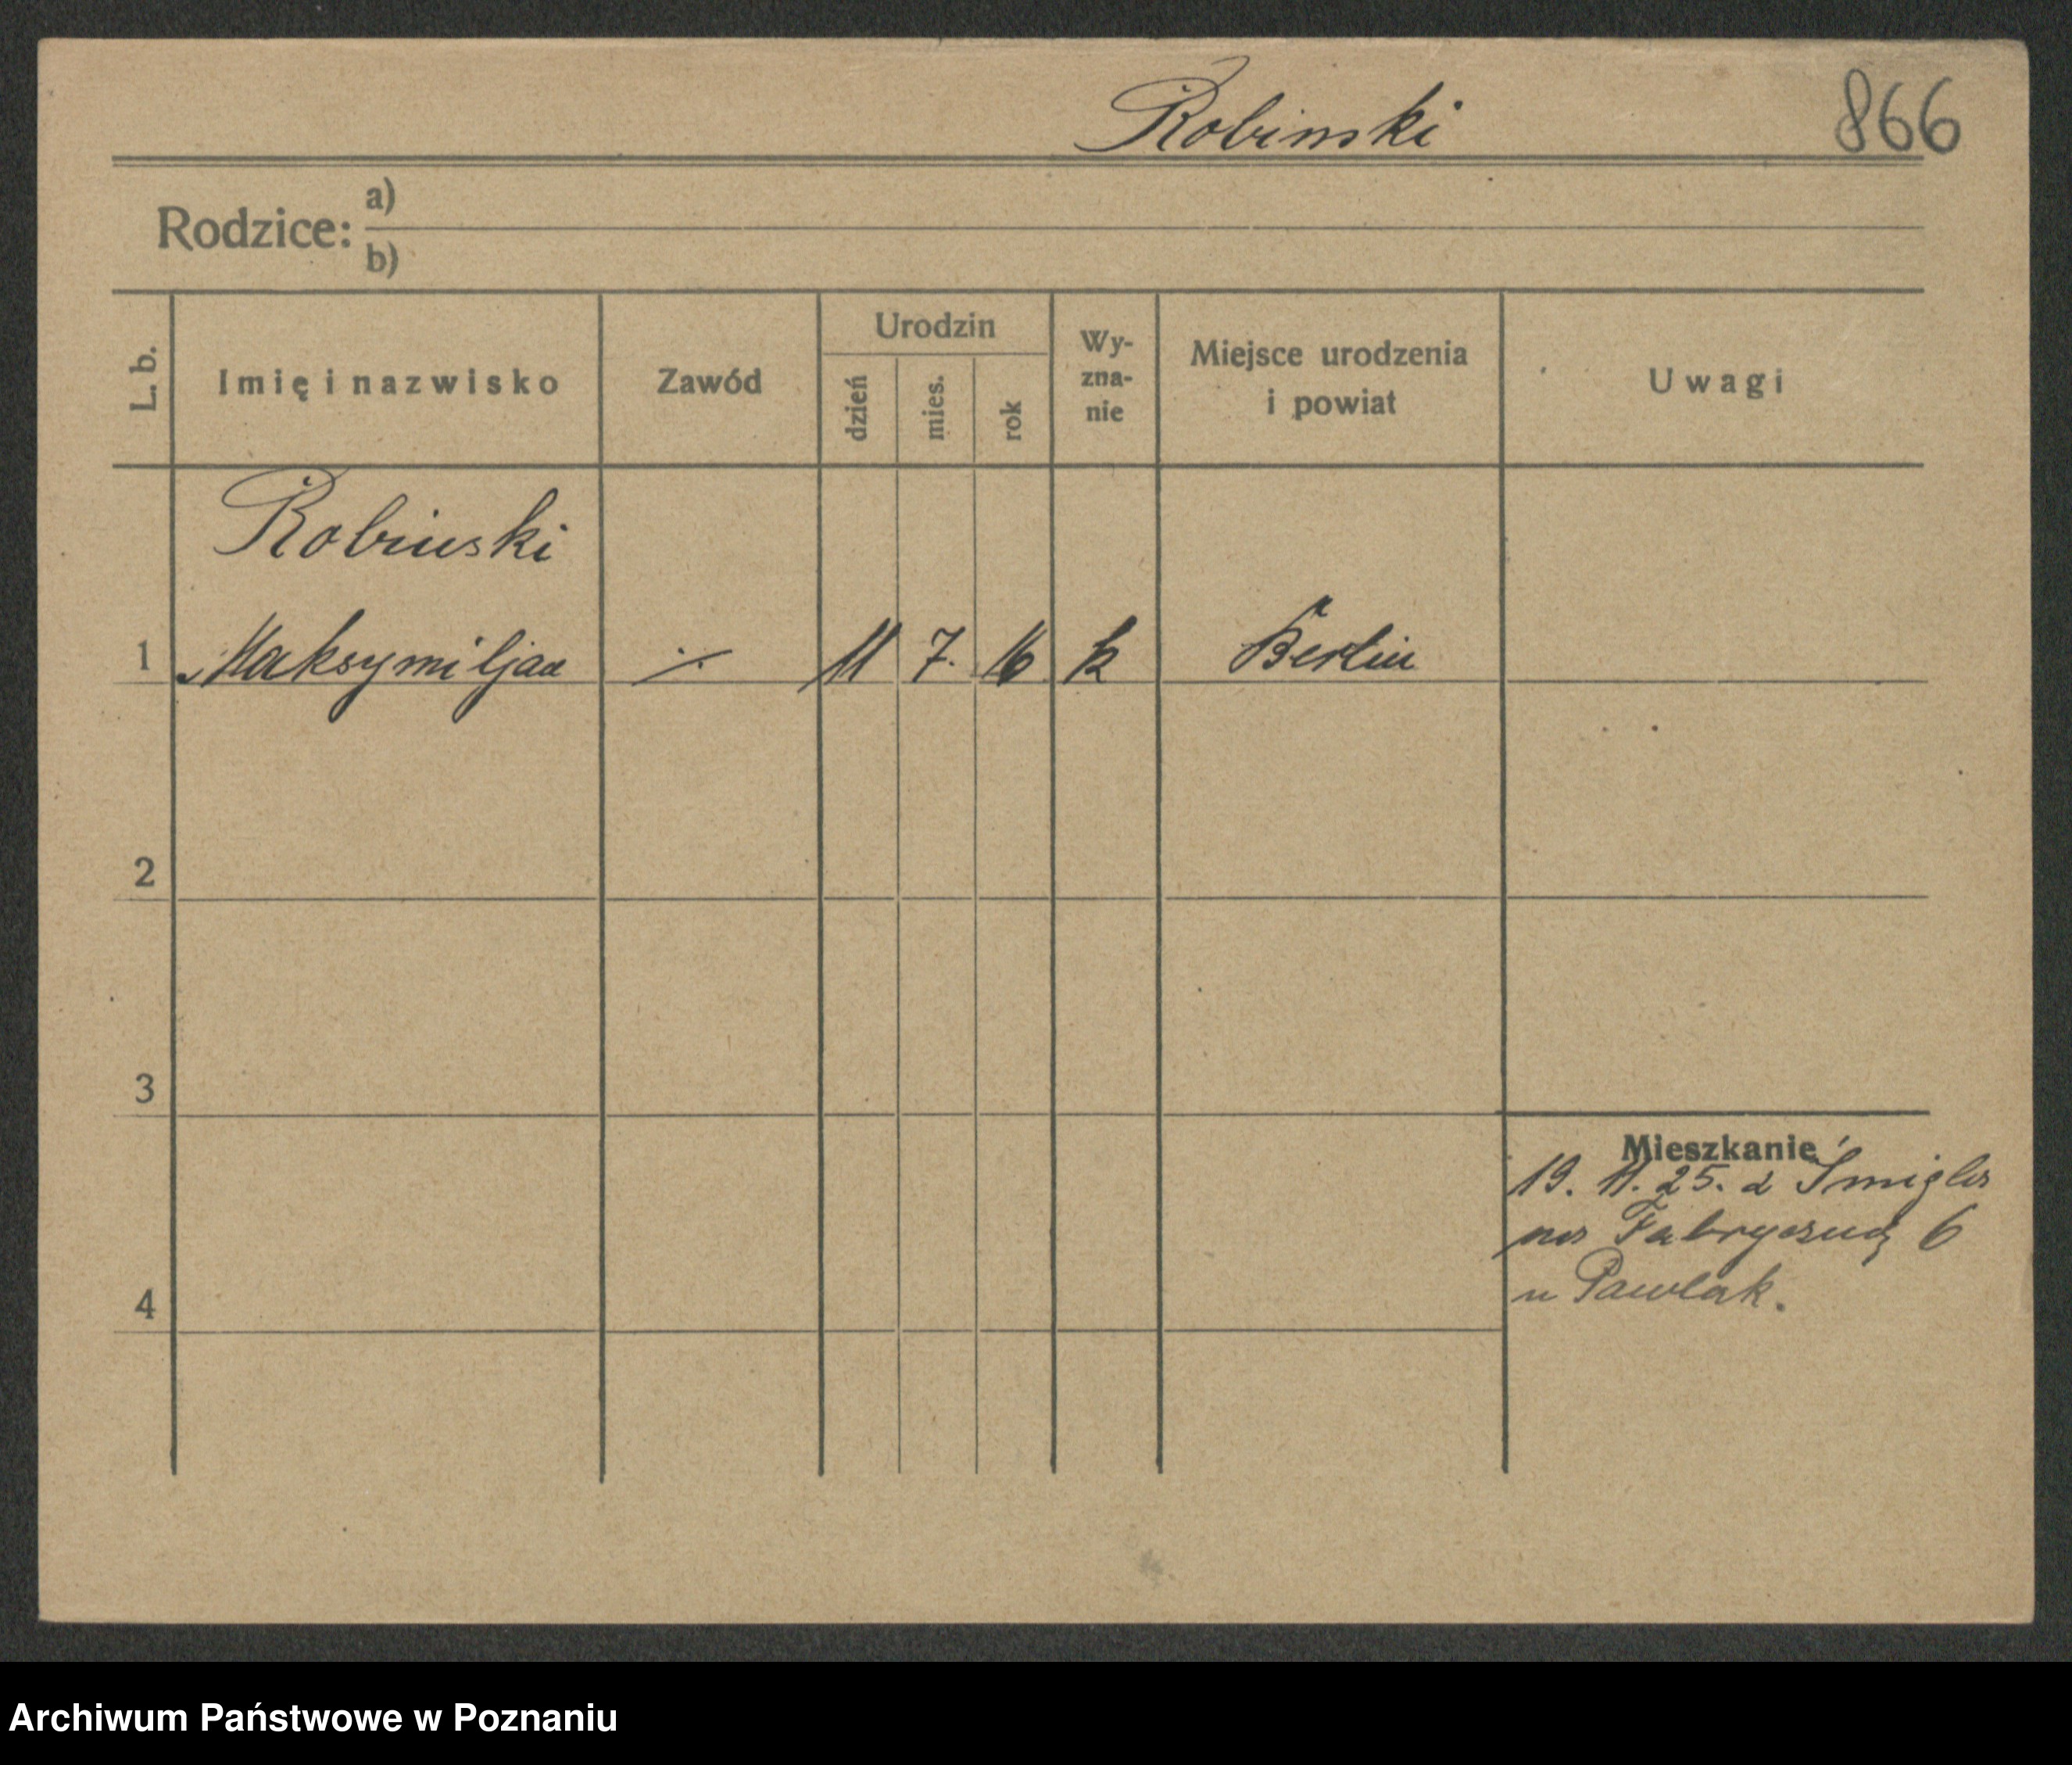 Robinski 866
Rodzice: a)
b)
L. b. Imię i nazwisko Zawód Urodzin dzień mies. rok Wy-zna-nie Miejsce urodzenia i powiat Uwagi
Robinski
1 Maksymiljan ·/· 11 7. 16 k Berlin
2
3
Mieszkanie
19. 11. 25. z Śmigla
na Fabryczną 6
u Pawlak.
4
Archiwum Państwowe w Poznaniu